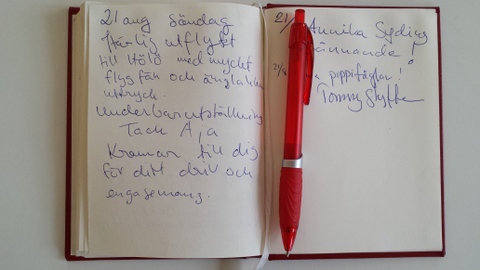 21 aug Söndag
Härlig utflykt
till Höld med mycket
flygfän och
uttryck.
Underbar utställning
Tack
Kramar till dig
för ditt driv och
engagemang.
21/ Annika
ännande!
21/8 pippifåglar!
Tommy